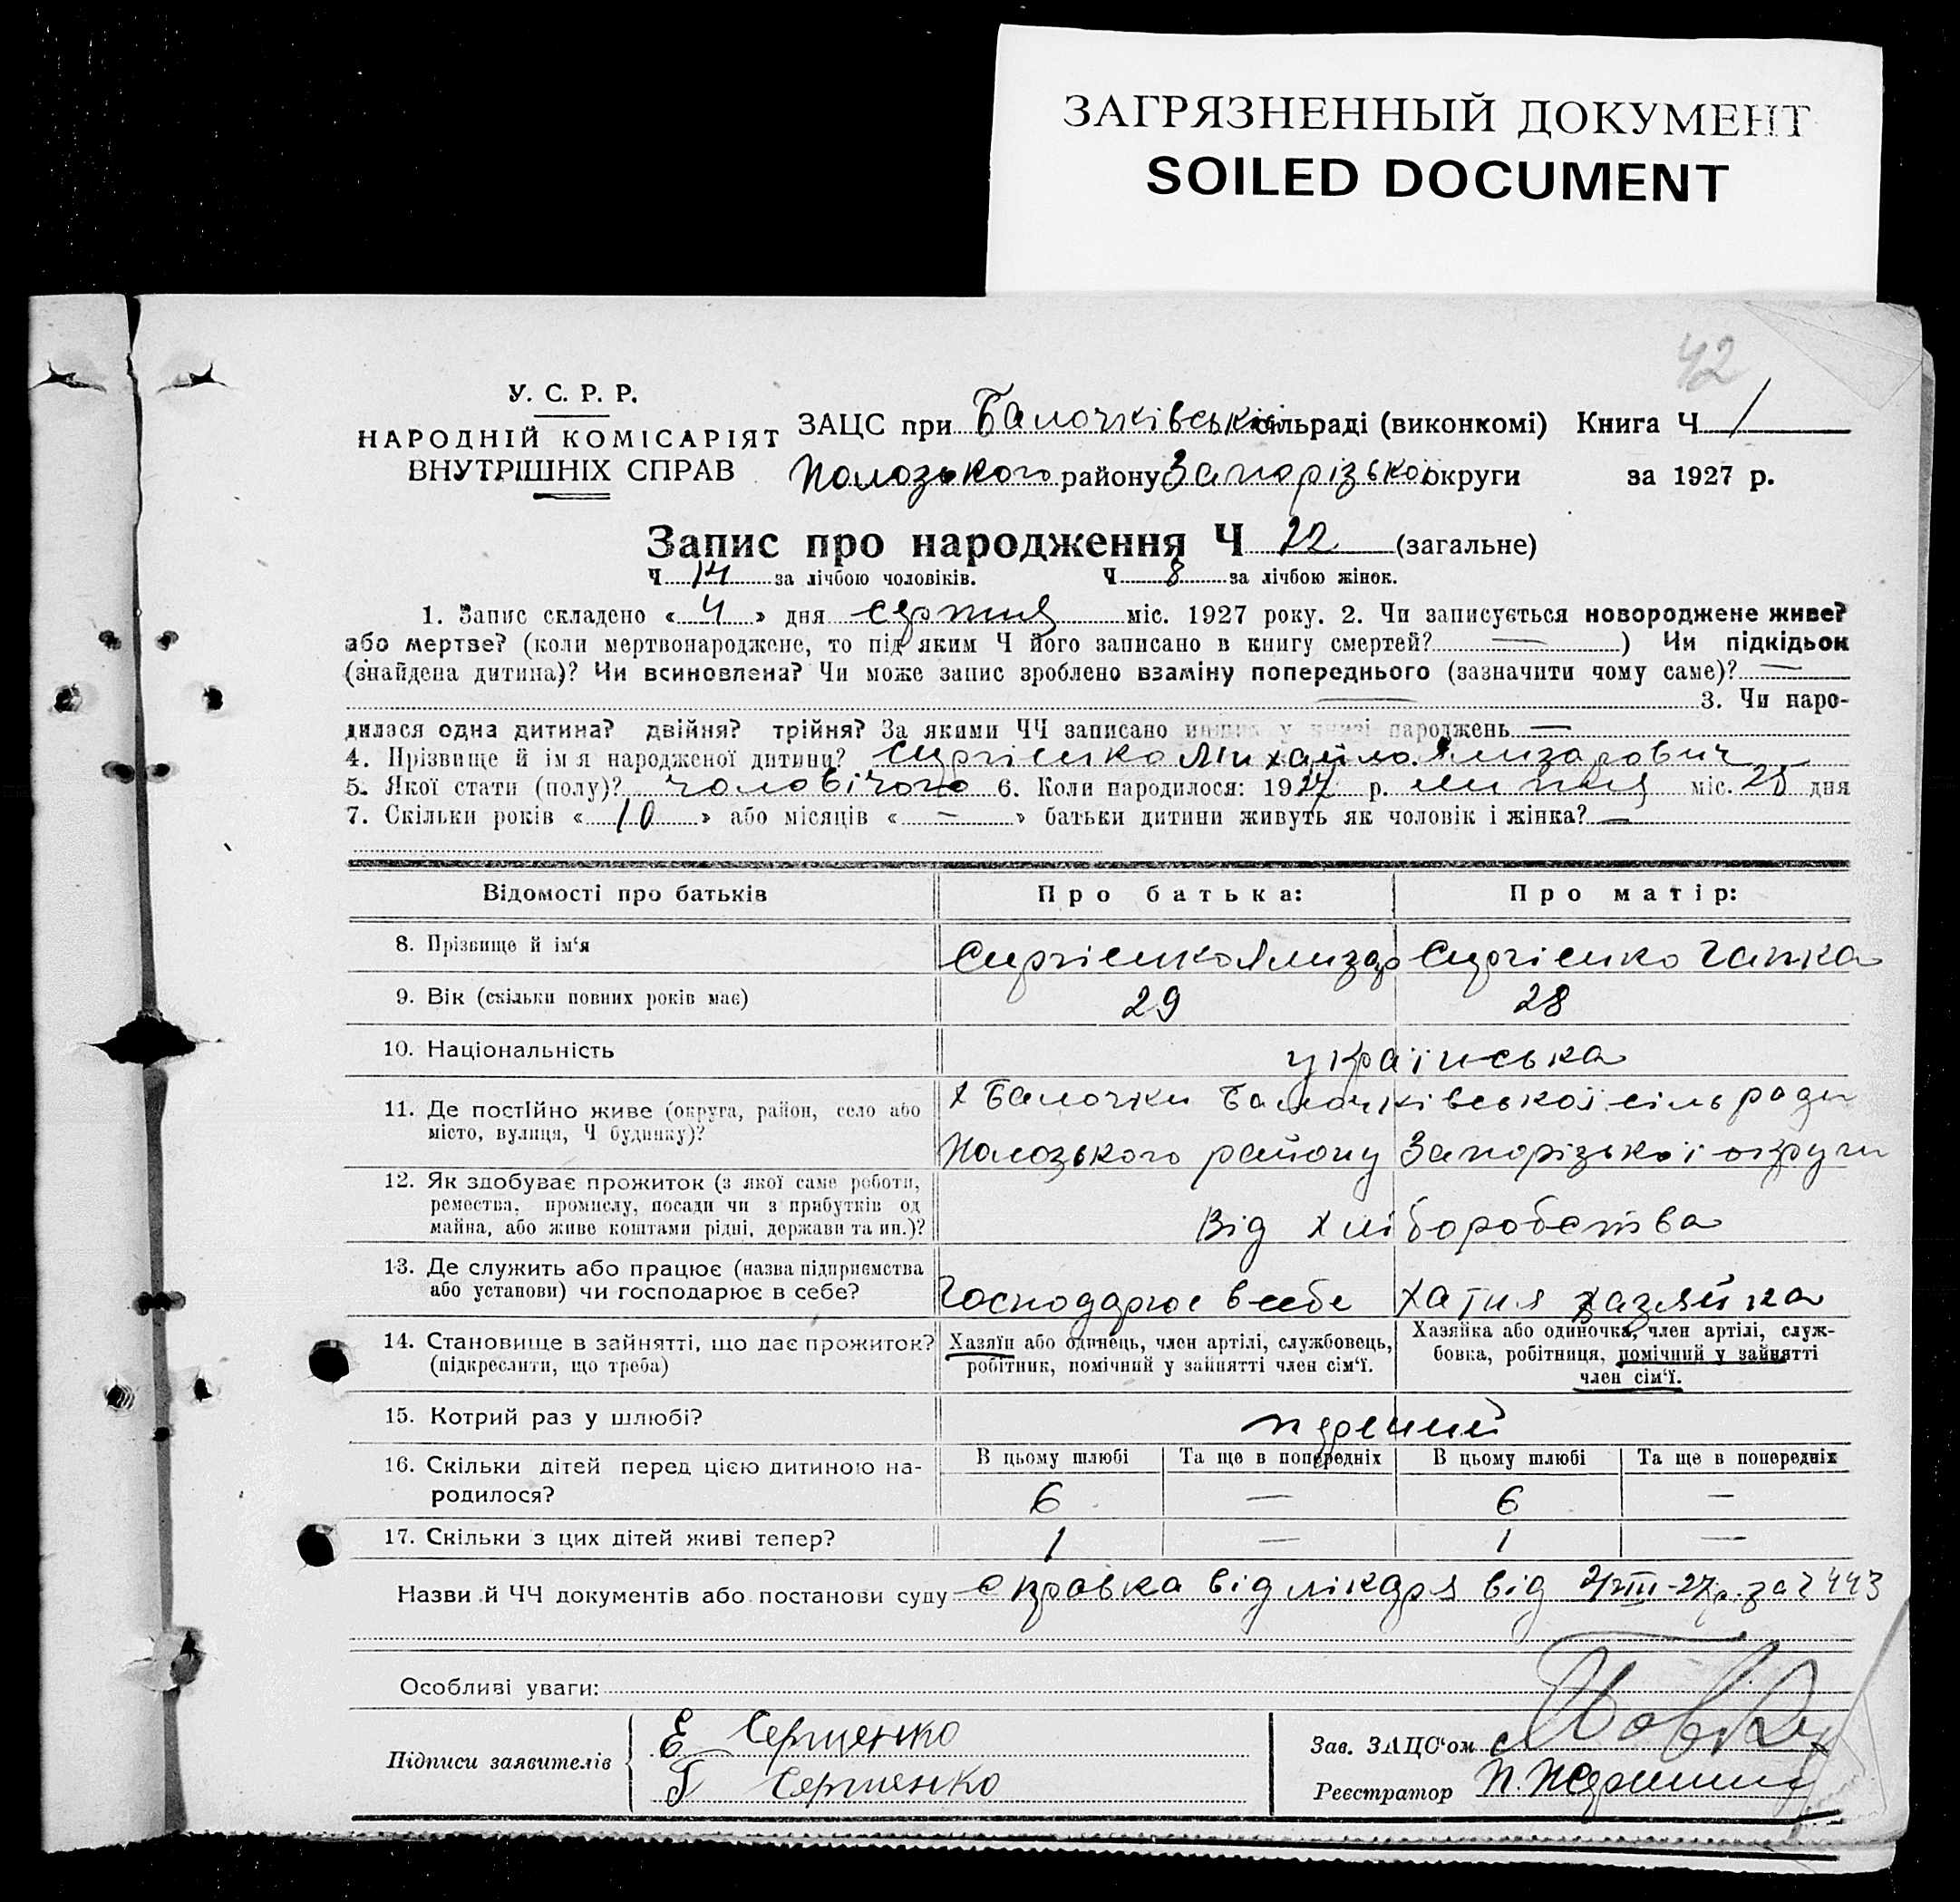 ЗАГРЯЗНЕННЫЙ ДОКУМЕНТ
SOILED DOCUMENT
42
У. С. Р. Р.
НАРОДНІЙ КОМІСАРІЯТ
ВНУТРІШНІХ СПРАВ
ЗАЦС при Балочківській сільраді (виконкомі) Книга Ч 1
Полозького району Запорізької округи за 1927 р.
Запис про народження Ч 22 (загальне)
Ч 14 за лічбою чоловіків. Ч 8 за лічбою жінок.
1. Запис складено « 4 » дня серпня міс. 1927 року. 2. Чи записується новороджене живе?
або мертве? (коли мертвонароджене, то під яким Ч його записано в книгу смертей? — ) Чи підкідьок
(знайдена дитина)? Чи всиновлена? Чи може запис зроблено взаміну попереднього (зазначити чому саме)? —
— 3. Чи наро-
дилася одна дитина? двійня? трійня? За якими ЧЧ записано инших у книзі народжень —
4. Прізвище й ім я народженої дитини? Сиргіенко Михайло Ялизарович
5. Якої стати (полу)? чоловічого 6. Коли народилося: 1927 р. липня міс. 25 дня
7. Скільки років « 10 » або місяців « — » батьки дитини живуть як чоловік і жінка? —
Відомості про батьків Про батька: Про матір:
8. Прізвище й ім'я Сиргіенко Ялизар Сиргіенко Гапка
9. Вік (скільки повних років має) 29 28
10. Національність українська
11. Де постійно живе (округа, район, село або х Балочки Балочківської сільради
місто, вулиця, Ч будинку)? Полозького району Запорізької округи
12. Як здобуває прожиток (з якої саме роботи,
ремества, промислу, посади чи з прибутків од
майна, або живе коштами рідні, держави та ин.)? Від хліборобства
13. Де служить або працює (назва підприємства
або установи) чи господарює в себе? Господарює в себе хатня хазяйка
14. Становище в зайнятті, що дає прожиток? Хазяїн або одинець, член артілі, службовець, Хазяйка або одиночка, член артілі, служ-
(підкреслити, що треба) робітник, помічний у зайнятті член сім'ї. бовка, робітниця, помічний у зайнятті
член сім'ї.
15. Котрий раз у шлюбі? перший
16. Скільки дітей перед цією дитиною на- В цьому шлюбі Та ще в попередніх В цьому шлюбі Та ще в попередніх
родилося? 6 — 6 —
17. Скільки з цих дітей живі тепер? 1 — 1 —
Назви й ЧЧ документів або постанови суду справка від лікаря від 2/VIII-27р. за Ч 443
Особливі уваги:
Підписи заявителів Е Сергиенко
Г Сергиенко
Зав. ЗАЦС'ом
Реєстратор П.